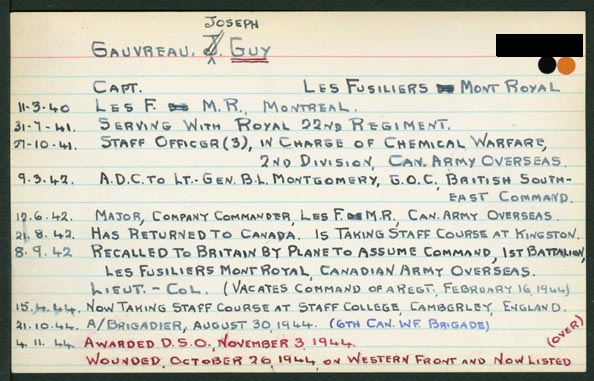 JOSEPH
GAUVREAU, J. GUY
CAPT. LES FUSILIERS MONT ROYAL
11-3-40 LES F. M.R., MONTREAL.
31-7-41. SERVING WITH ROYAL 22ND REGIMENT.
27-10-41. STAFF OFFICER (3), IN CHARGE OF CHEMICAL WARFARE,
2ND DIVISION, CAN. ARMY OVERSEAS.
9.3.42. A.D.C. TO LT.-GEN. B.L. MONTGOMERY, G.O.C, BRITISH SOUTH-
EAST COMMAND.
12.6.42. MAJOR, COMPANY COMMANDER, LES F. M.R., CAN. ARMY OVERSEAS.
21.8.42. HAS RETURNED TO CANADA. IS TAKING STAFF COURSE AT KINGSTON.
8.9.42 RECALLED TO BRITAIN BY PLANE TO ASSUME COMMAND, 1ST BATTALION,
LES FUSILIERS MONT ROYAL, CANADIAN ARMY OVERSEAS.
LIEUT.-COL. (VACATES COMMAND OF A REGT, FEBRUARY 16, 1944)
15.4.44. NOW TAKING STAFF COURSE AT STAFF COLLEGE, CAMBERLEY, ENGLAND.
21.10.44. A/BRIGADIER, AUGUST 30, 1944. (6TH CAN. INF. BRIGADE)
4.11.44. AWARDED D.S.O., NOVEMBER 3, 1944. (OVER)
WOUNDED, OCTOBER 26, 1944, ON WESTERN FRONT AND NOW LISTED